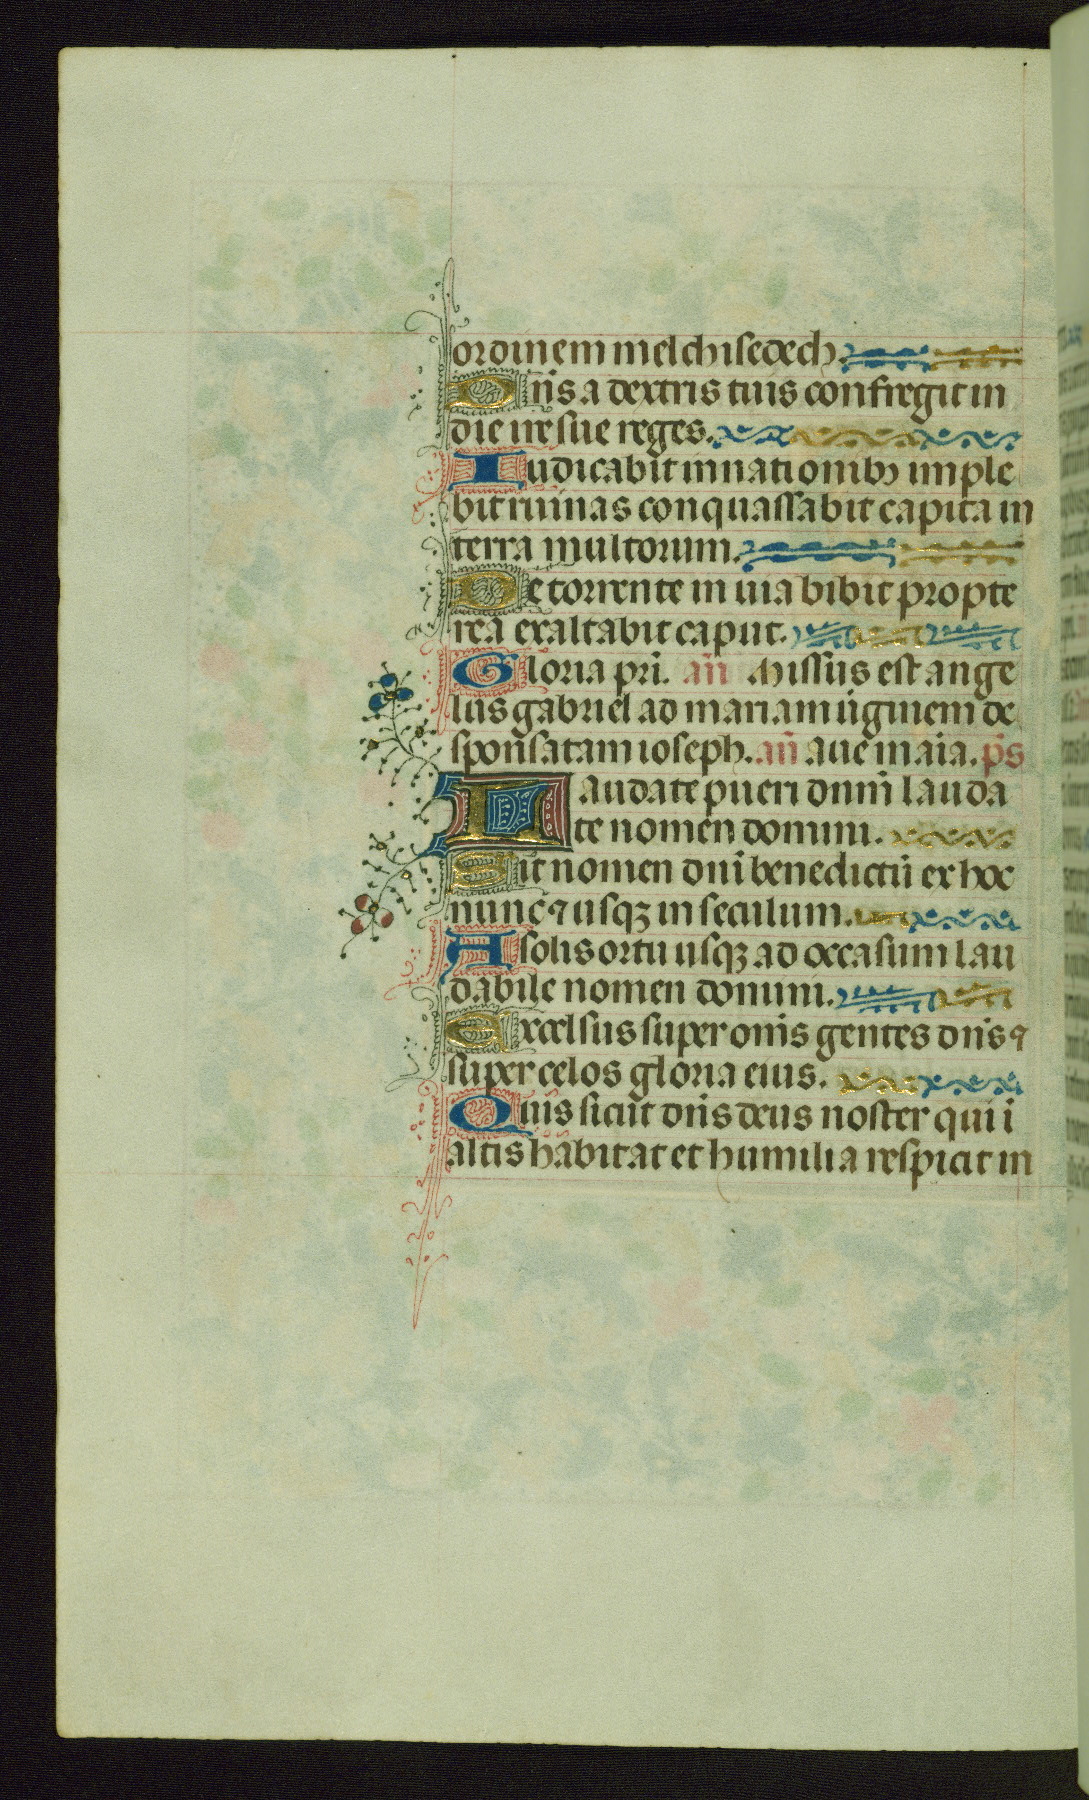 ordinem melchisedech.
Dn̄s a dextris tuis confregit in
die ire sue reges.
Iudicabit in nationibꝫ imple
bit ruinas conquassabit capita in
terra multorum.
De torrente in uia bibit propte
rea exaltabit caput.
Gloria pr̄i. an̄ Missus est ange
lus gabriel ad mariam ūginem de
sponsatam ioseph. an̄ aue maīa. p̄s
Laudate pueri dnm̄ lauda
te nomen domini.
Sit nomen dnī benedictū ex hoc
nunc ⁊ usqꝫ in seculum.
A solis ortu usqꝫ ad occasum lau
dabile nomen domini.
Excelsus super om̄s gentes dn̄s ⁊
super celos gloria eius.
Quis sicut dn̄s deus noster qui ī
altis habitat et humilia respicit in